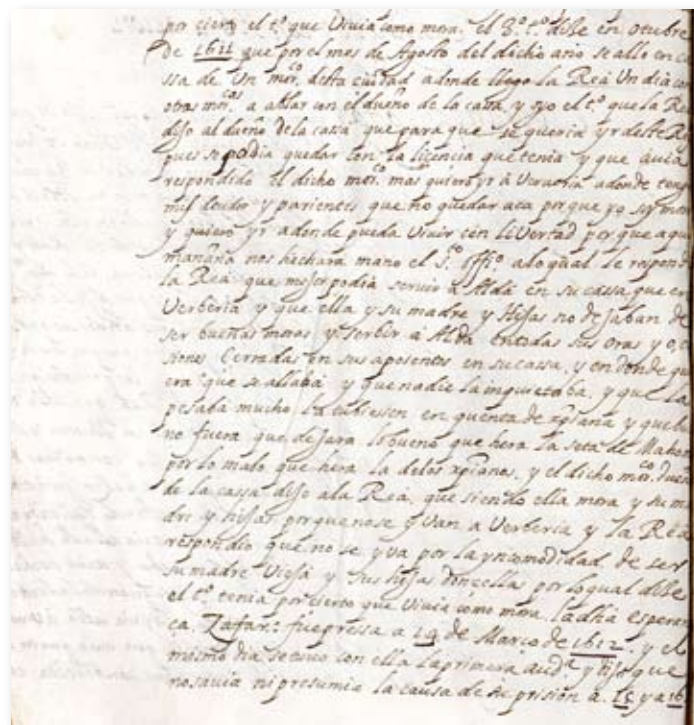 por cierto el tº que Vivia como mora. el 8º tº dise en otubre
de 1611 que por el mes de Agosto del dicho año se allo en ca
ssa de Un morco desta ciudad adonde llego la Rea Un dia con
otras morcas a ablar con el dueño de la cassa, y oyo el tº que la Re
dijo al dueño de la cassa que para que se queria yr deste Re
pues se podia quedar con la licencia que tenia y que avia
respondido el dicho morco mas quiero yr à Berveria adonde teng
mil deudos y parientes que no quedar aca porque yo soy moro
y quiero yr adonde pueda Vivir con liVertad porque aqui
mañana nos hechara mano el Sto Offiº. a lo qual le respond
la Rea que mejor podia servir a Alda en su cassa que en
Verberia y que ella y su madre y Hijas no dejaban de
ser buenas moras y serbir à Alda en todas sus oras y oca
siones Cerradas en sus aposentos en su cassa y en donde qui
era que se allaba y que nadie la inquietaba, y que la
pesaba mucho la tubiessen en quenta de xpiana y que bu
no fuera que dejara lo bueno que hera la seta de Mahom
por lo malo que hera la de los xpianos, y el dicho morco dueño
de la cassa dijo a la Rea, que siendo ella mora y su ma
dre y hijas porque no se yvan a Verberia y la Rea
respondio que no se yva por la yncomodidad de ser
su madre Vieja y sus hijas donzellas por lo qual dise
el tº tenia por cierto que Vivia como mora. la dha esperen
ca Zafar: fue pressa a 19 de Março de 1612. y el
mismo dia se tuvo con ella la primera audª y dijo que
no savia ni presumia la causa de su prision à 15 y a 16